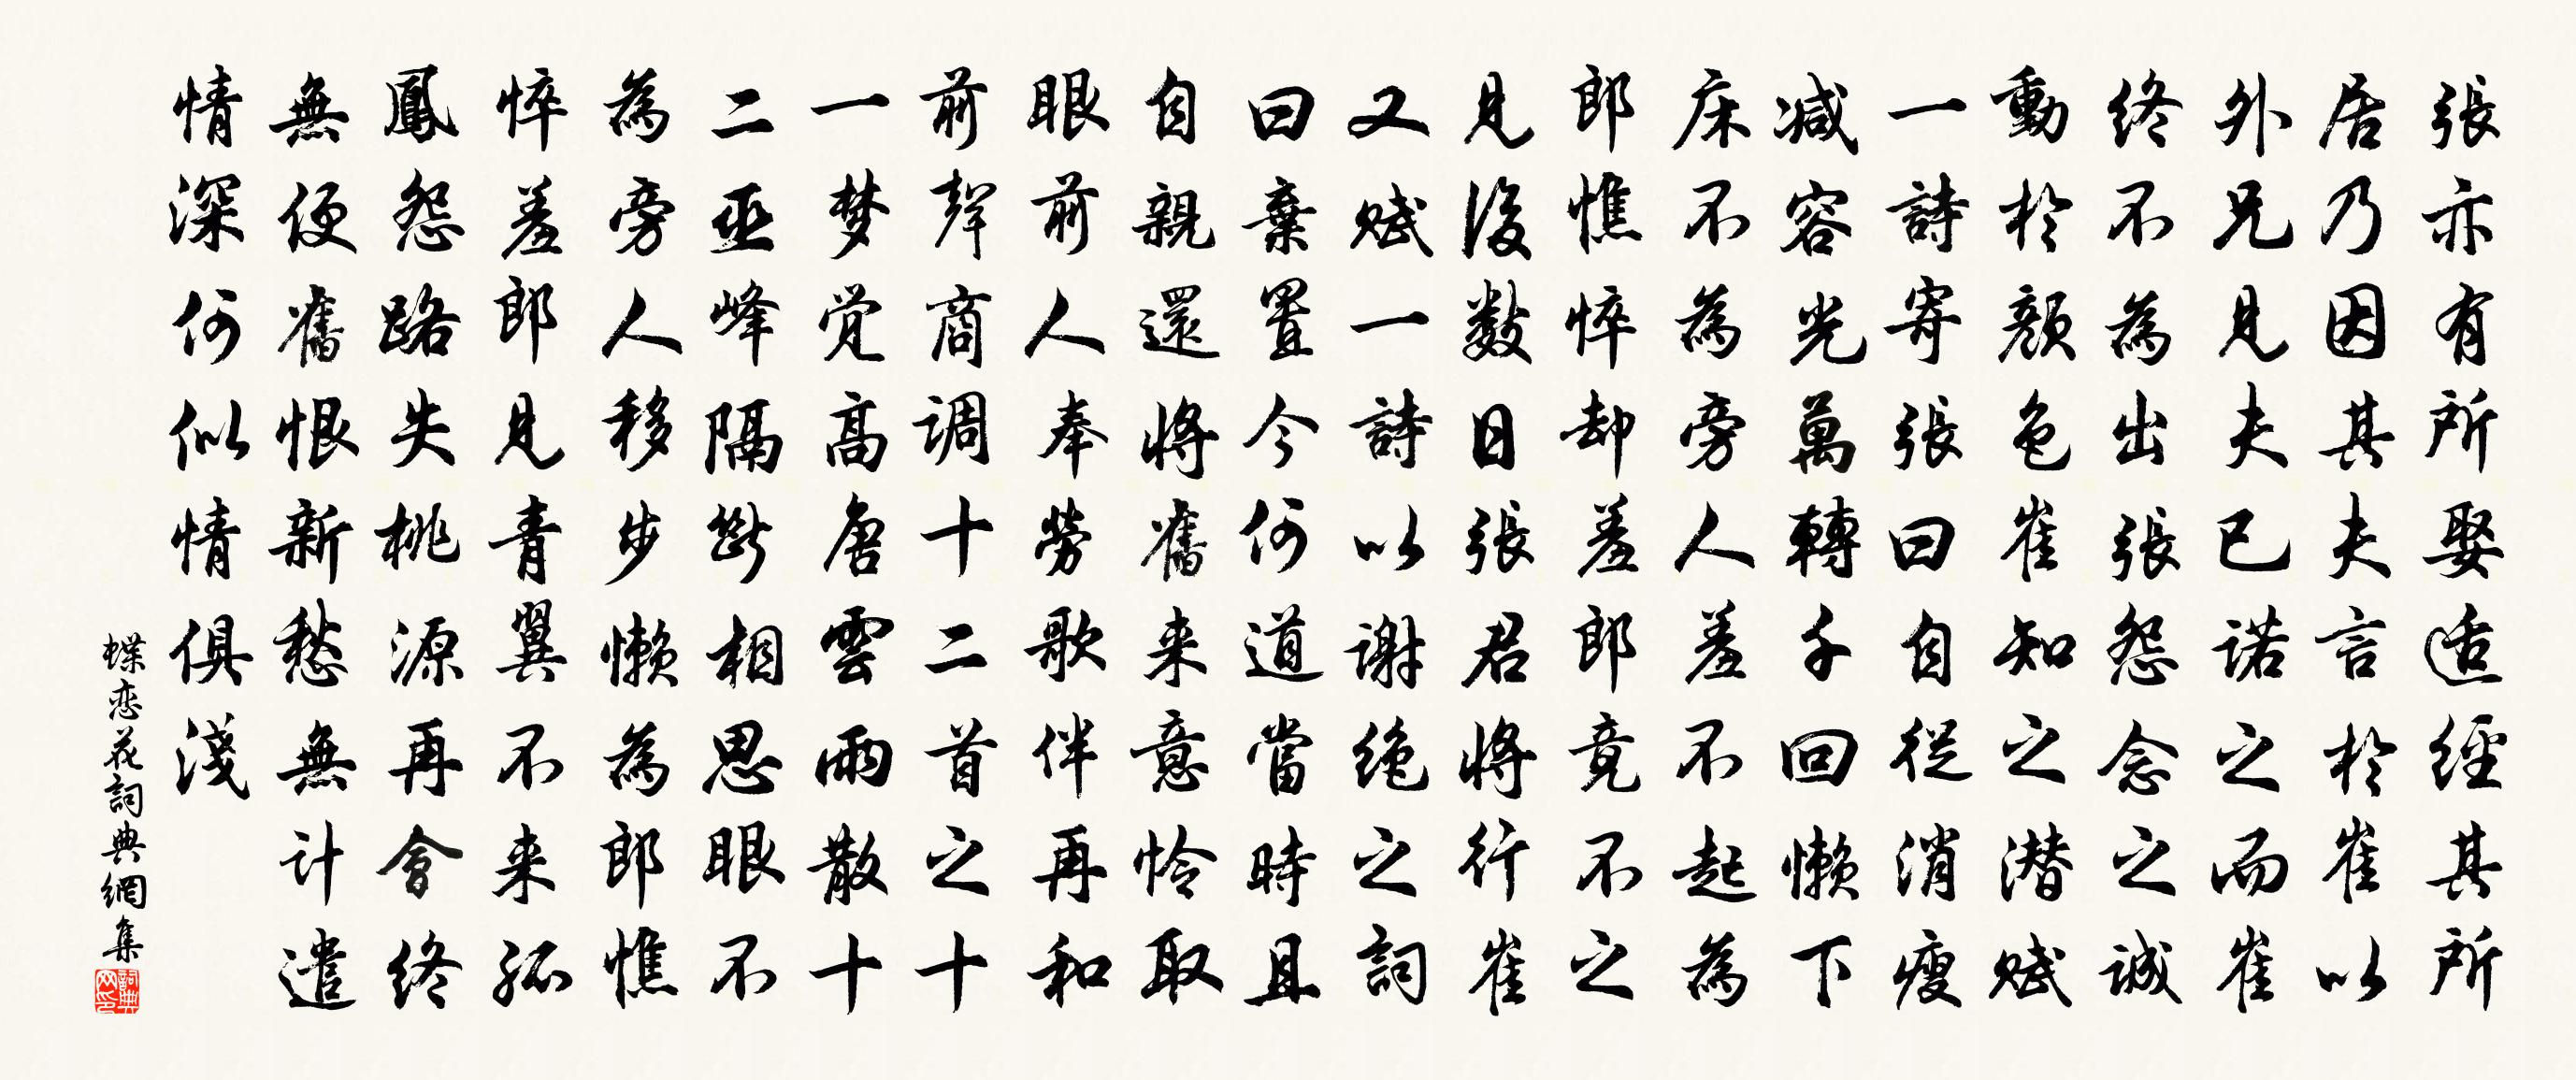 張亦有所娶适經其所
居乃因其夫言於崔以
外兄見夫已诺之而崔
终不為出張怨念之诚
動於顏色崔知之潜赋
一詩寄張曰自從消瘦
减容光萬轉千回懒下
床不為旁人羞不起為
郎憔悴却羞郎竟不之
見後数日張君將行崔
又赋一詩以谢绝之詞
曰棄置今何道當時且
自親還將舊来意怜取
眼前人奉劳歌伴再和
前聲商调十二首之十
一梦觉高唐雲雨散十
二巫峰隔断相思眼不
為旁人移步懒為郎憔
悴羞郎見青翼不来孤
鳳怨路失桃源再會终
無便舊恨新愁無计遣
情深何似情俱淺
蝶恋花詞典網集
詞典网印